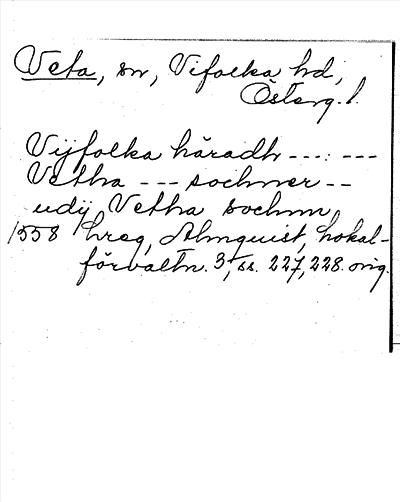 Veta, sn, Vifolka hd,
Österg. l.
Vijfolka häradh ---:---
Vetha --- sochner --
udij Vetha sochnn,
1558 hreg, Almquist, Lokal-
förvaltn. 3, ss. 227, 228. orig.